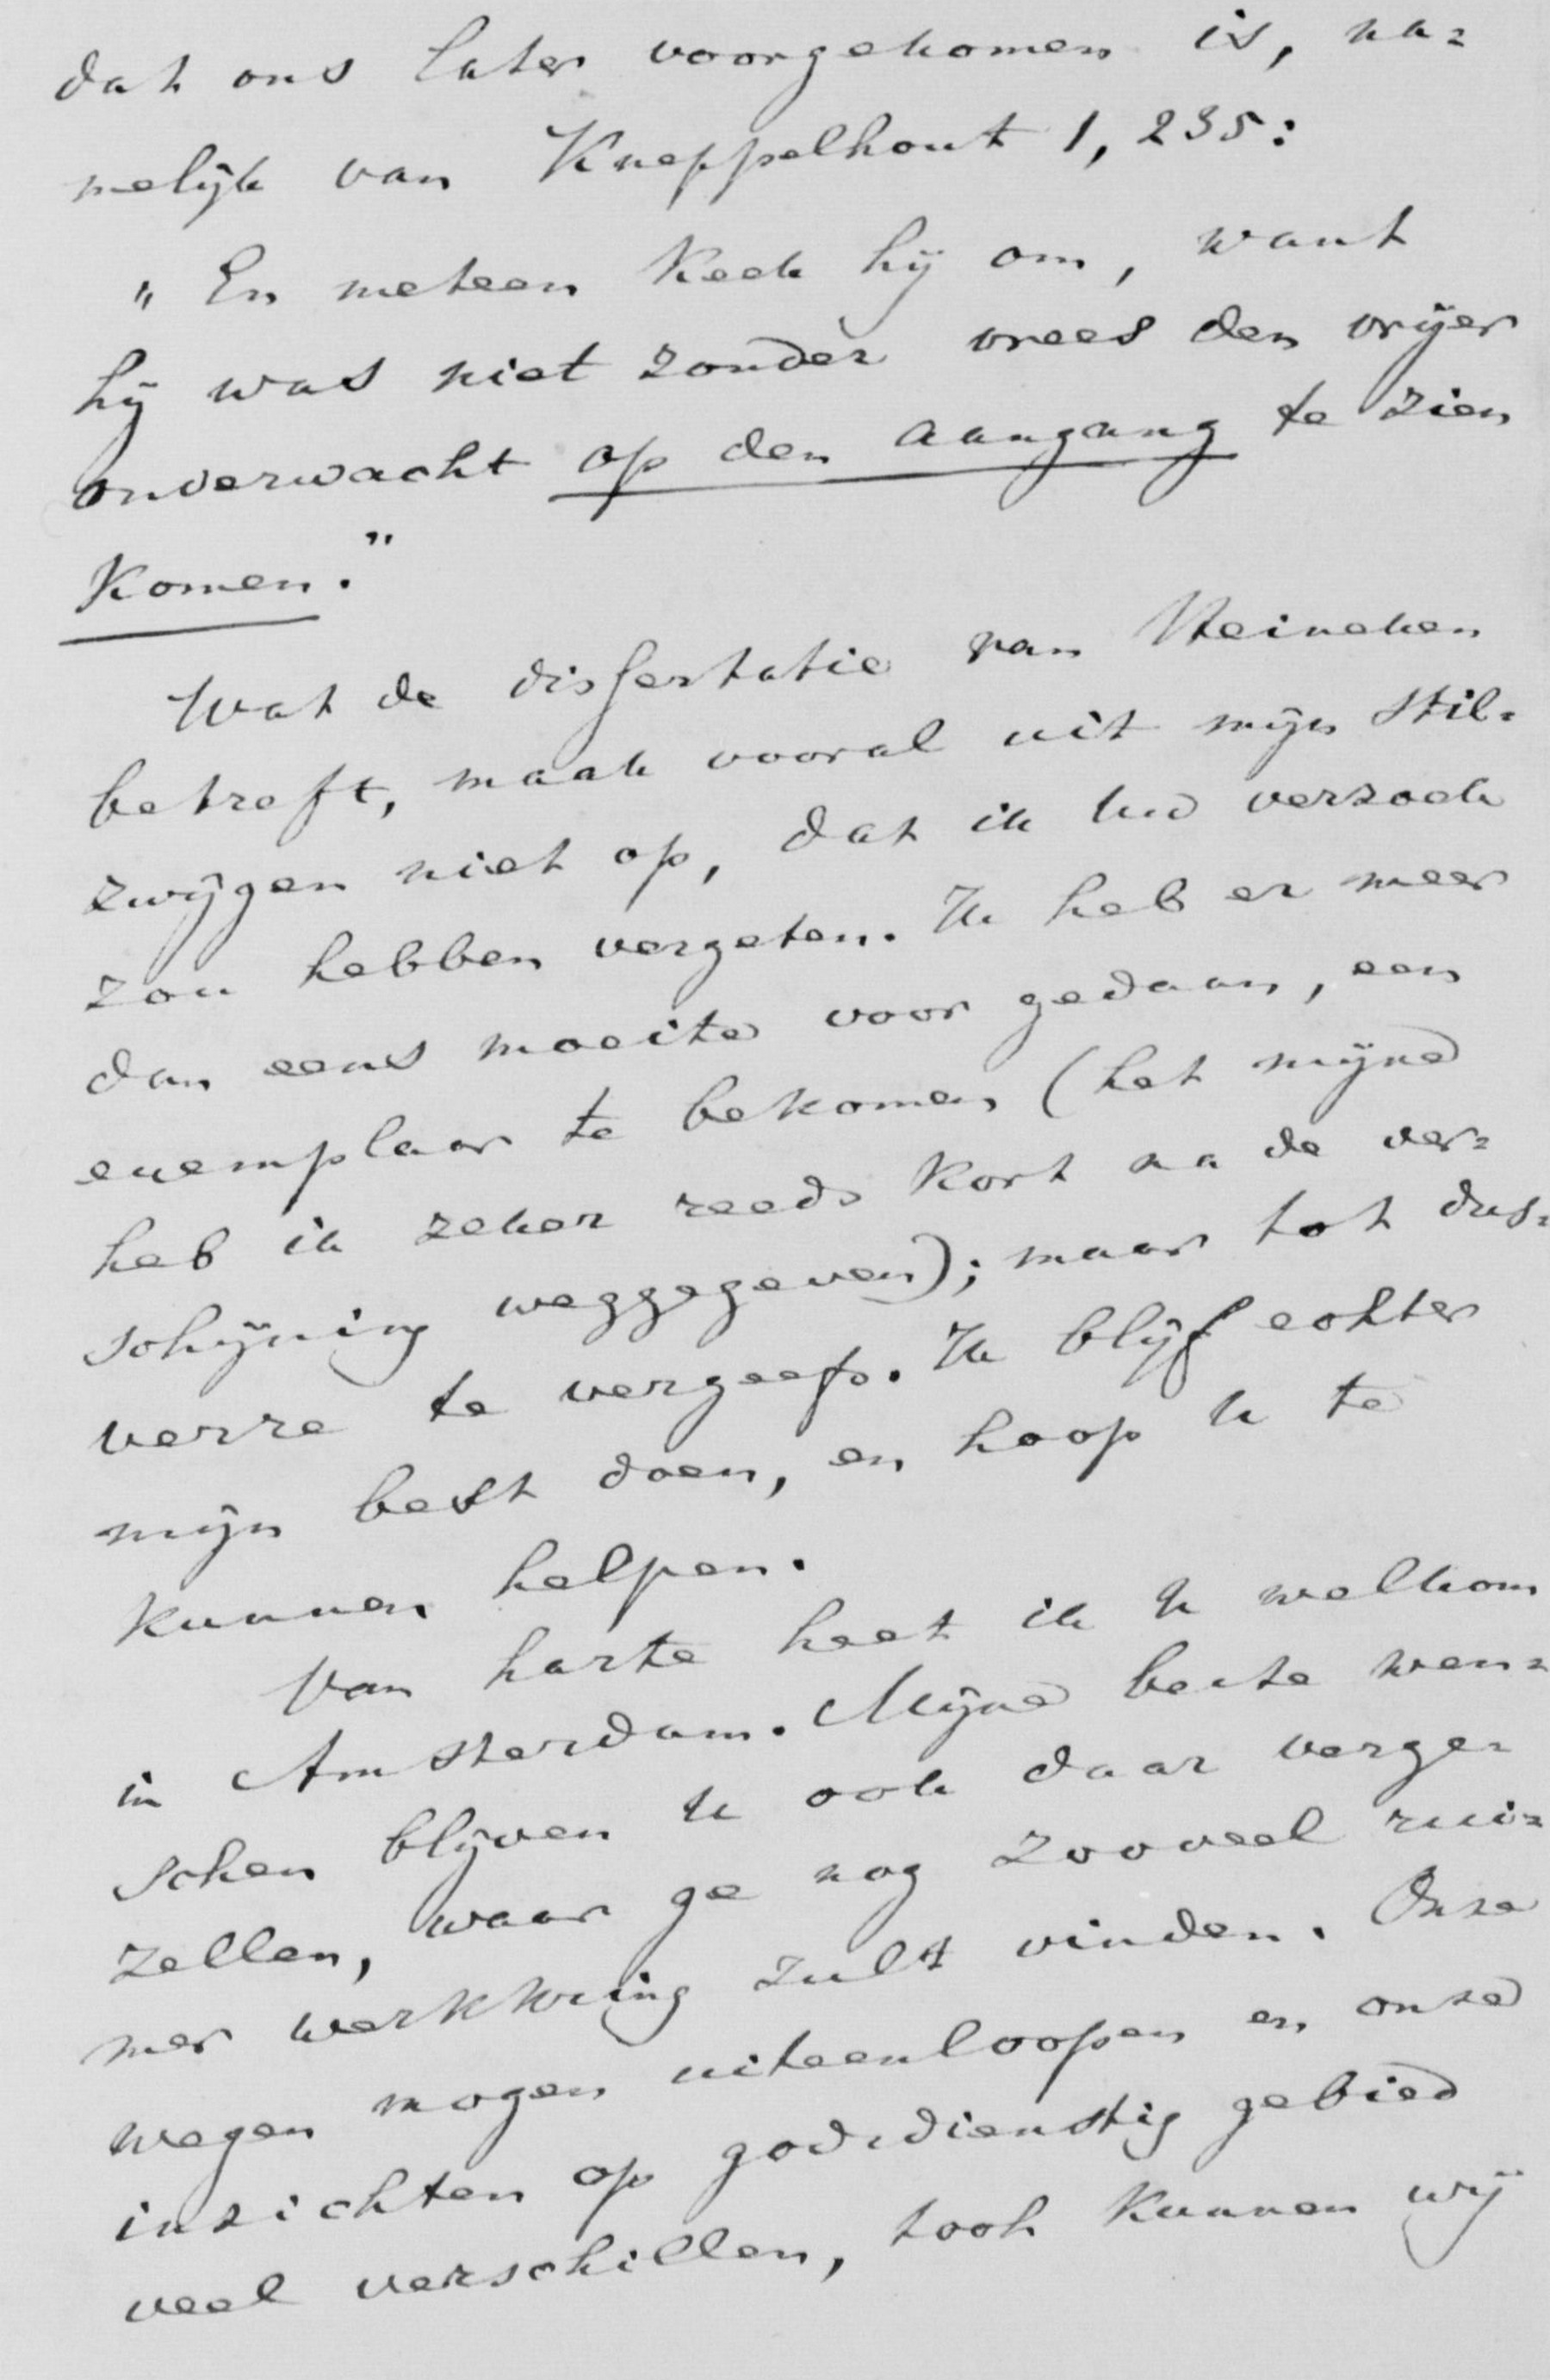 dat ons later voorgekomen is, na=
melijk van Kneppelhout 1, 235:
„ En meteen keek hij om, want
hij was niet zonder vrees den vrijer
onverwacht op den aangang te zien
komen."
Wat de dissertatie van Heineken
betreft, maak vooral uit mijn stil=
zwijgen niet op, dat ik Uw verzoek
zou hebben vergeten. Ik heb er meer
dan eens moeite voor gedaan, een
exemplaar te bekomen (het mijne
heb ik zeker reeds kort na de ver=
schijning weggegeven); maar tot dus=
verre te vergeefs. Ik blijf echter
mijn best doen, en hoop U te
kunnen helpen.
Van harte heet ik U welkom
in Amsterdam. Mijne beste wen=
schen blijven U ook daar verge=
zellen, waar ge nog zooveel rui=
mer werkkring zult vinden. Onze
wegen mogen uiteenloopen en onze
inzichten op godsdienstig gebied
veel verschillen, toch kunnen wij